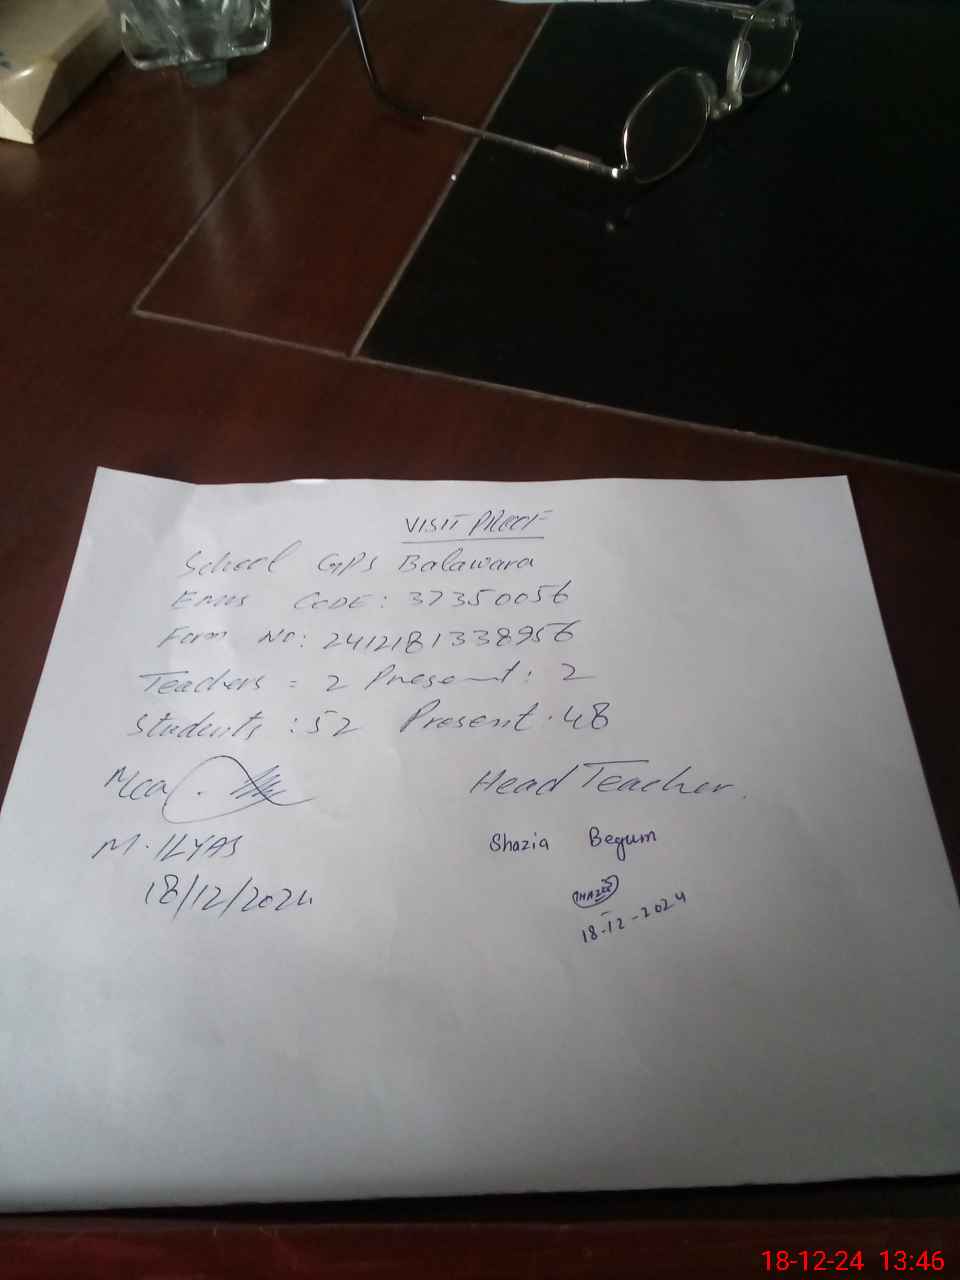 VISIT PROOF
School GPS Balawara
Emis CODE: 37350056
Form No: 2412181338956
Teachers = 2 Present: 2
Students : 52 Present. 48
Mca Head Teacher.
M. ILYAS Shazia Begum
18/12/2024
18-12-2024
18-12-24 13:46